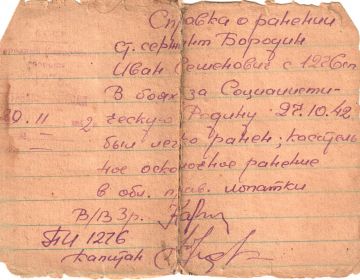 Справка о ранении
Ст. сержант Бородин
Иван Семенович с 1276сп
В боях за Социалисти-
20. 11 2 ческую Родину 27.10.42
был легко ранен, касатель
ное осколочное ранение
в обл. прав. лопатки
В/В 3р.
1276
Капитан